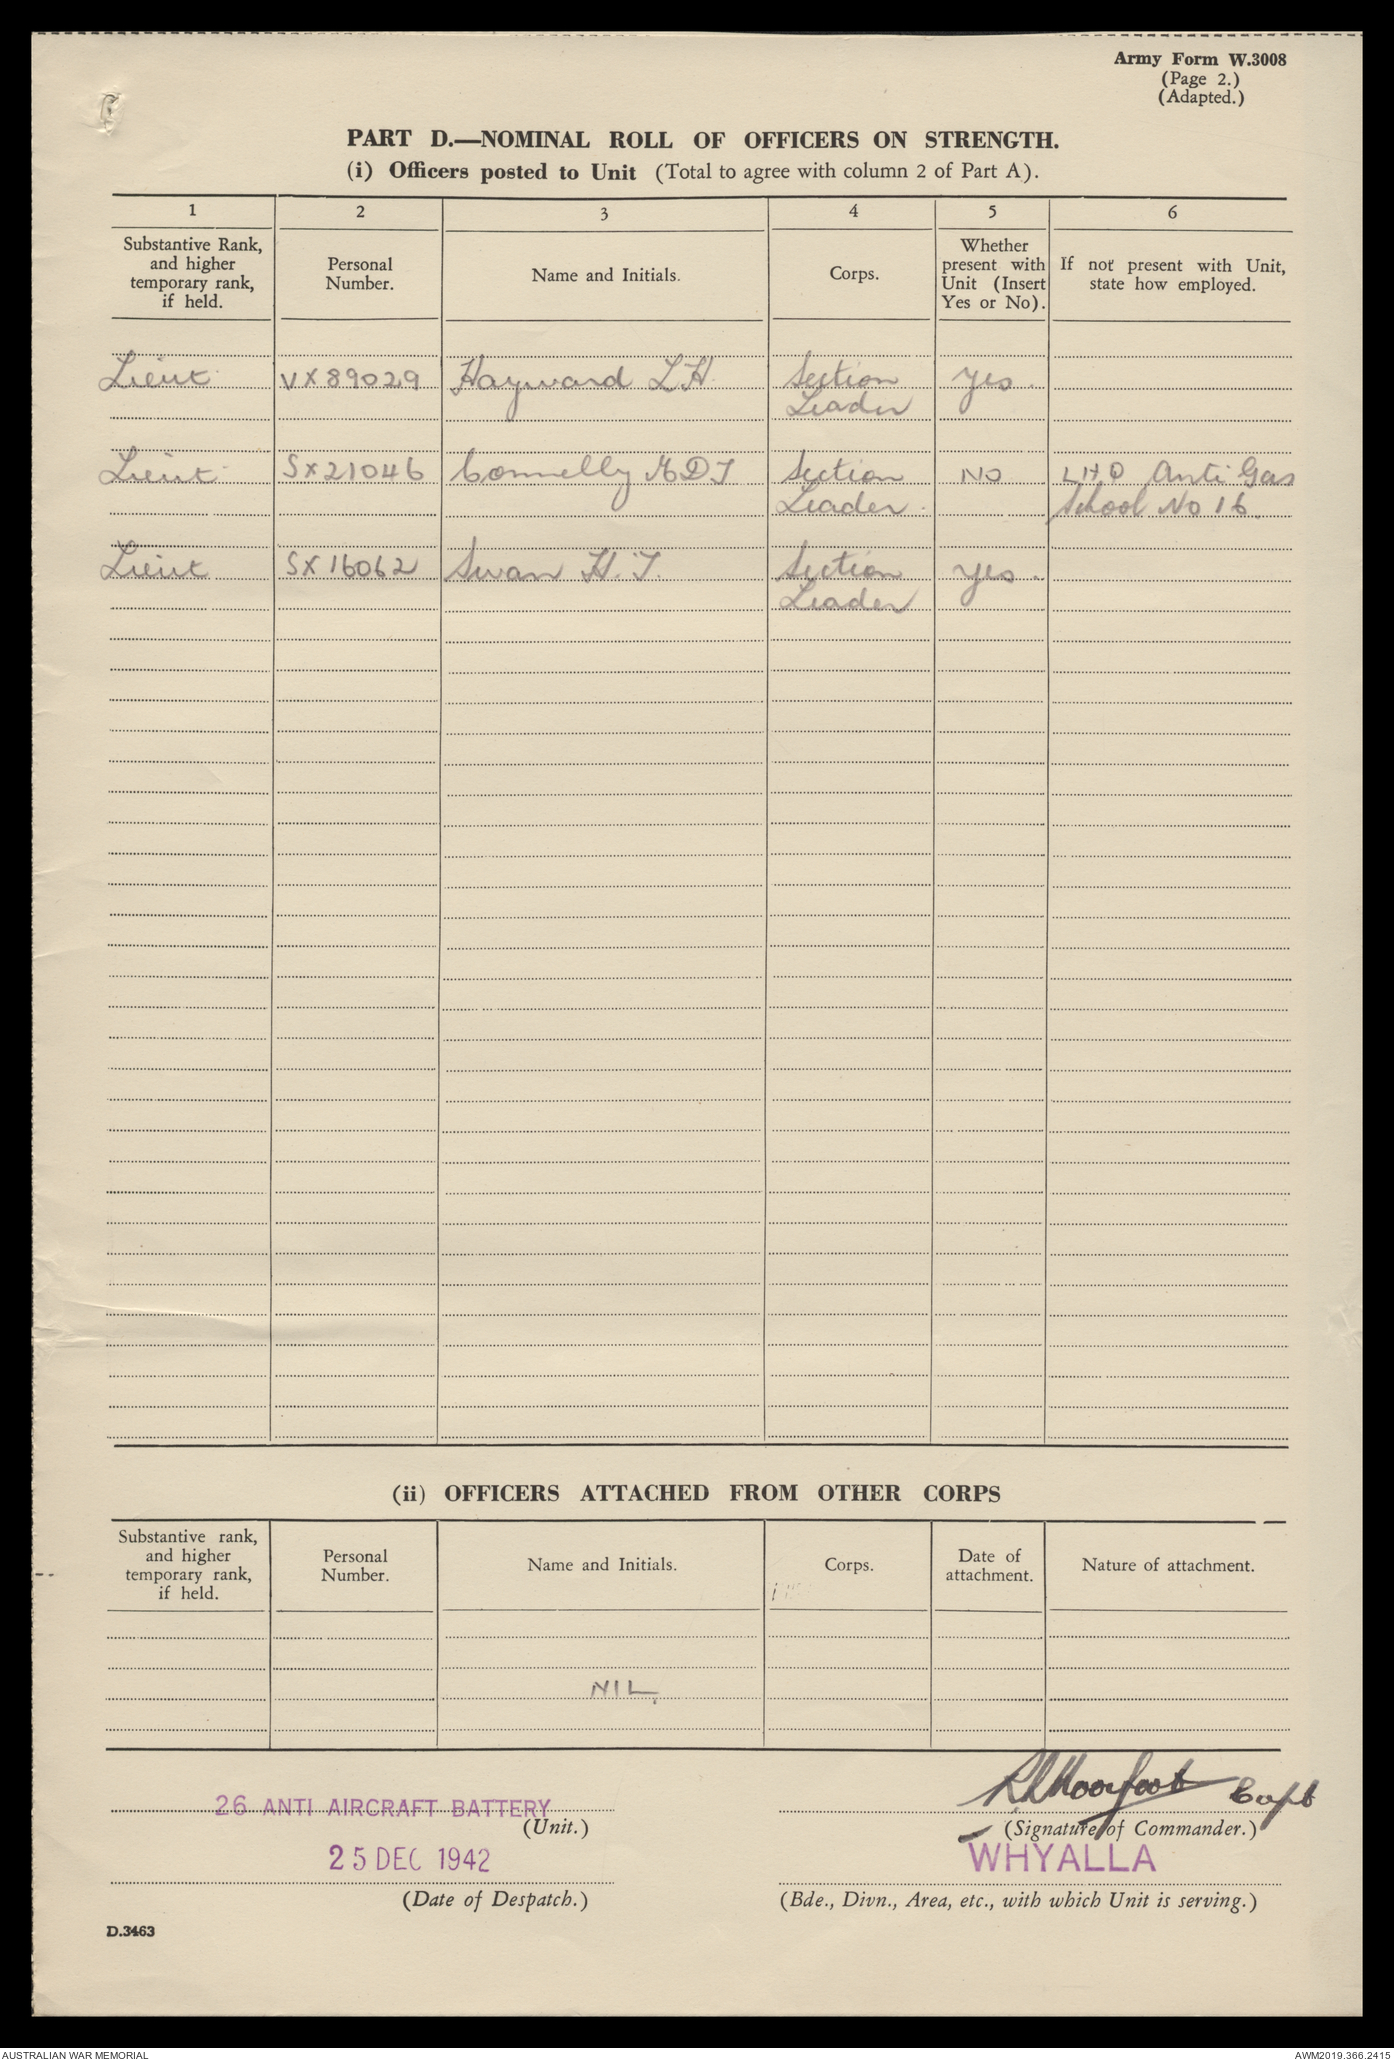 Army Form W.3008
(Page 2.)
(Adapted.)
PART D.—NOMINAL ROLL OF OFFICERS ON STRENGTH.
(i) Officers posted to Unit (Total to agree with column 2 of Part A).
1 2 3 4 5 6
Substantive Rank, and higher temporary rank, if held. Personal Number. Name and Initials. Corps. Whether present with Unit (Insert Yes or No). If not present with Unit, state how employed.
Lieut VX89029 Hayward L H. Section Yes.
Leader
Lieut SX21046 Connelly M D J Section NO LHQ Anti Gas
Leader. School No 16.
Lieut SX16062 Swan H. J. Section Yes.
Leader
(ii) OFFICERS ATTACHED FROM OTHER CORPS
Substantive rank, and higher temporary rank, if held. Personal Number. Name and Initials. Corps. Date of attachment. Nature of attachment.
NIL.
Capt
26 ANTI AIRCRAFT BATTERY
(Unit.) (Signature of Commander.)
25 DEC 1942 WHYALLA
(Date of Despatch.) (Bde., Divn., Area, etc., with which Unit is serving.)
D.3463
AUSTRALIAN WAR MEMORIAL AWM2019.366.2415